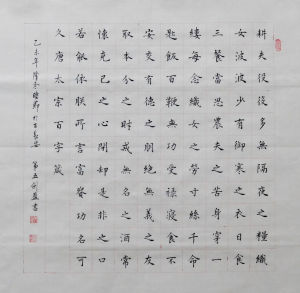 耕夫役役多無隔夜之糧織
女波波少有御寒之衣日食
三餐當思農夫之苦身穿一
縷每念織女之勞寸絲千命
匙飯百鞭無功受祿寢食不
安交有德之朋絕無義之友
取本分之財戒無名之酒常
懷克己之心閉却是非之口
若能依朕所言富貴功名可
久唐太宗百字箴
乙未年 於古長安 第五劍 書